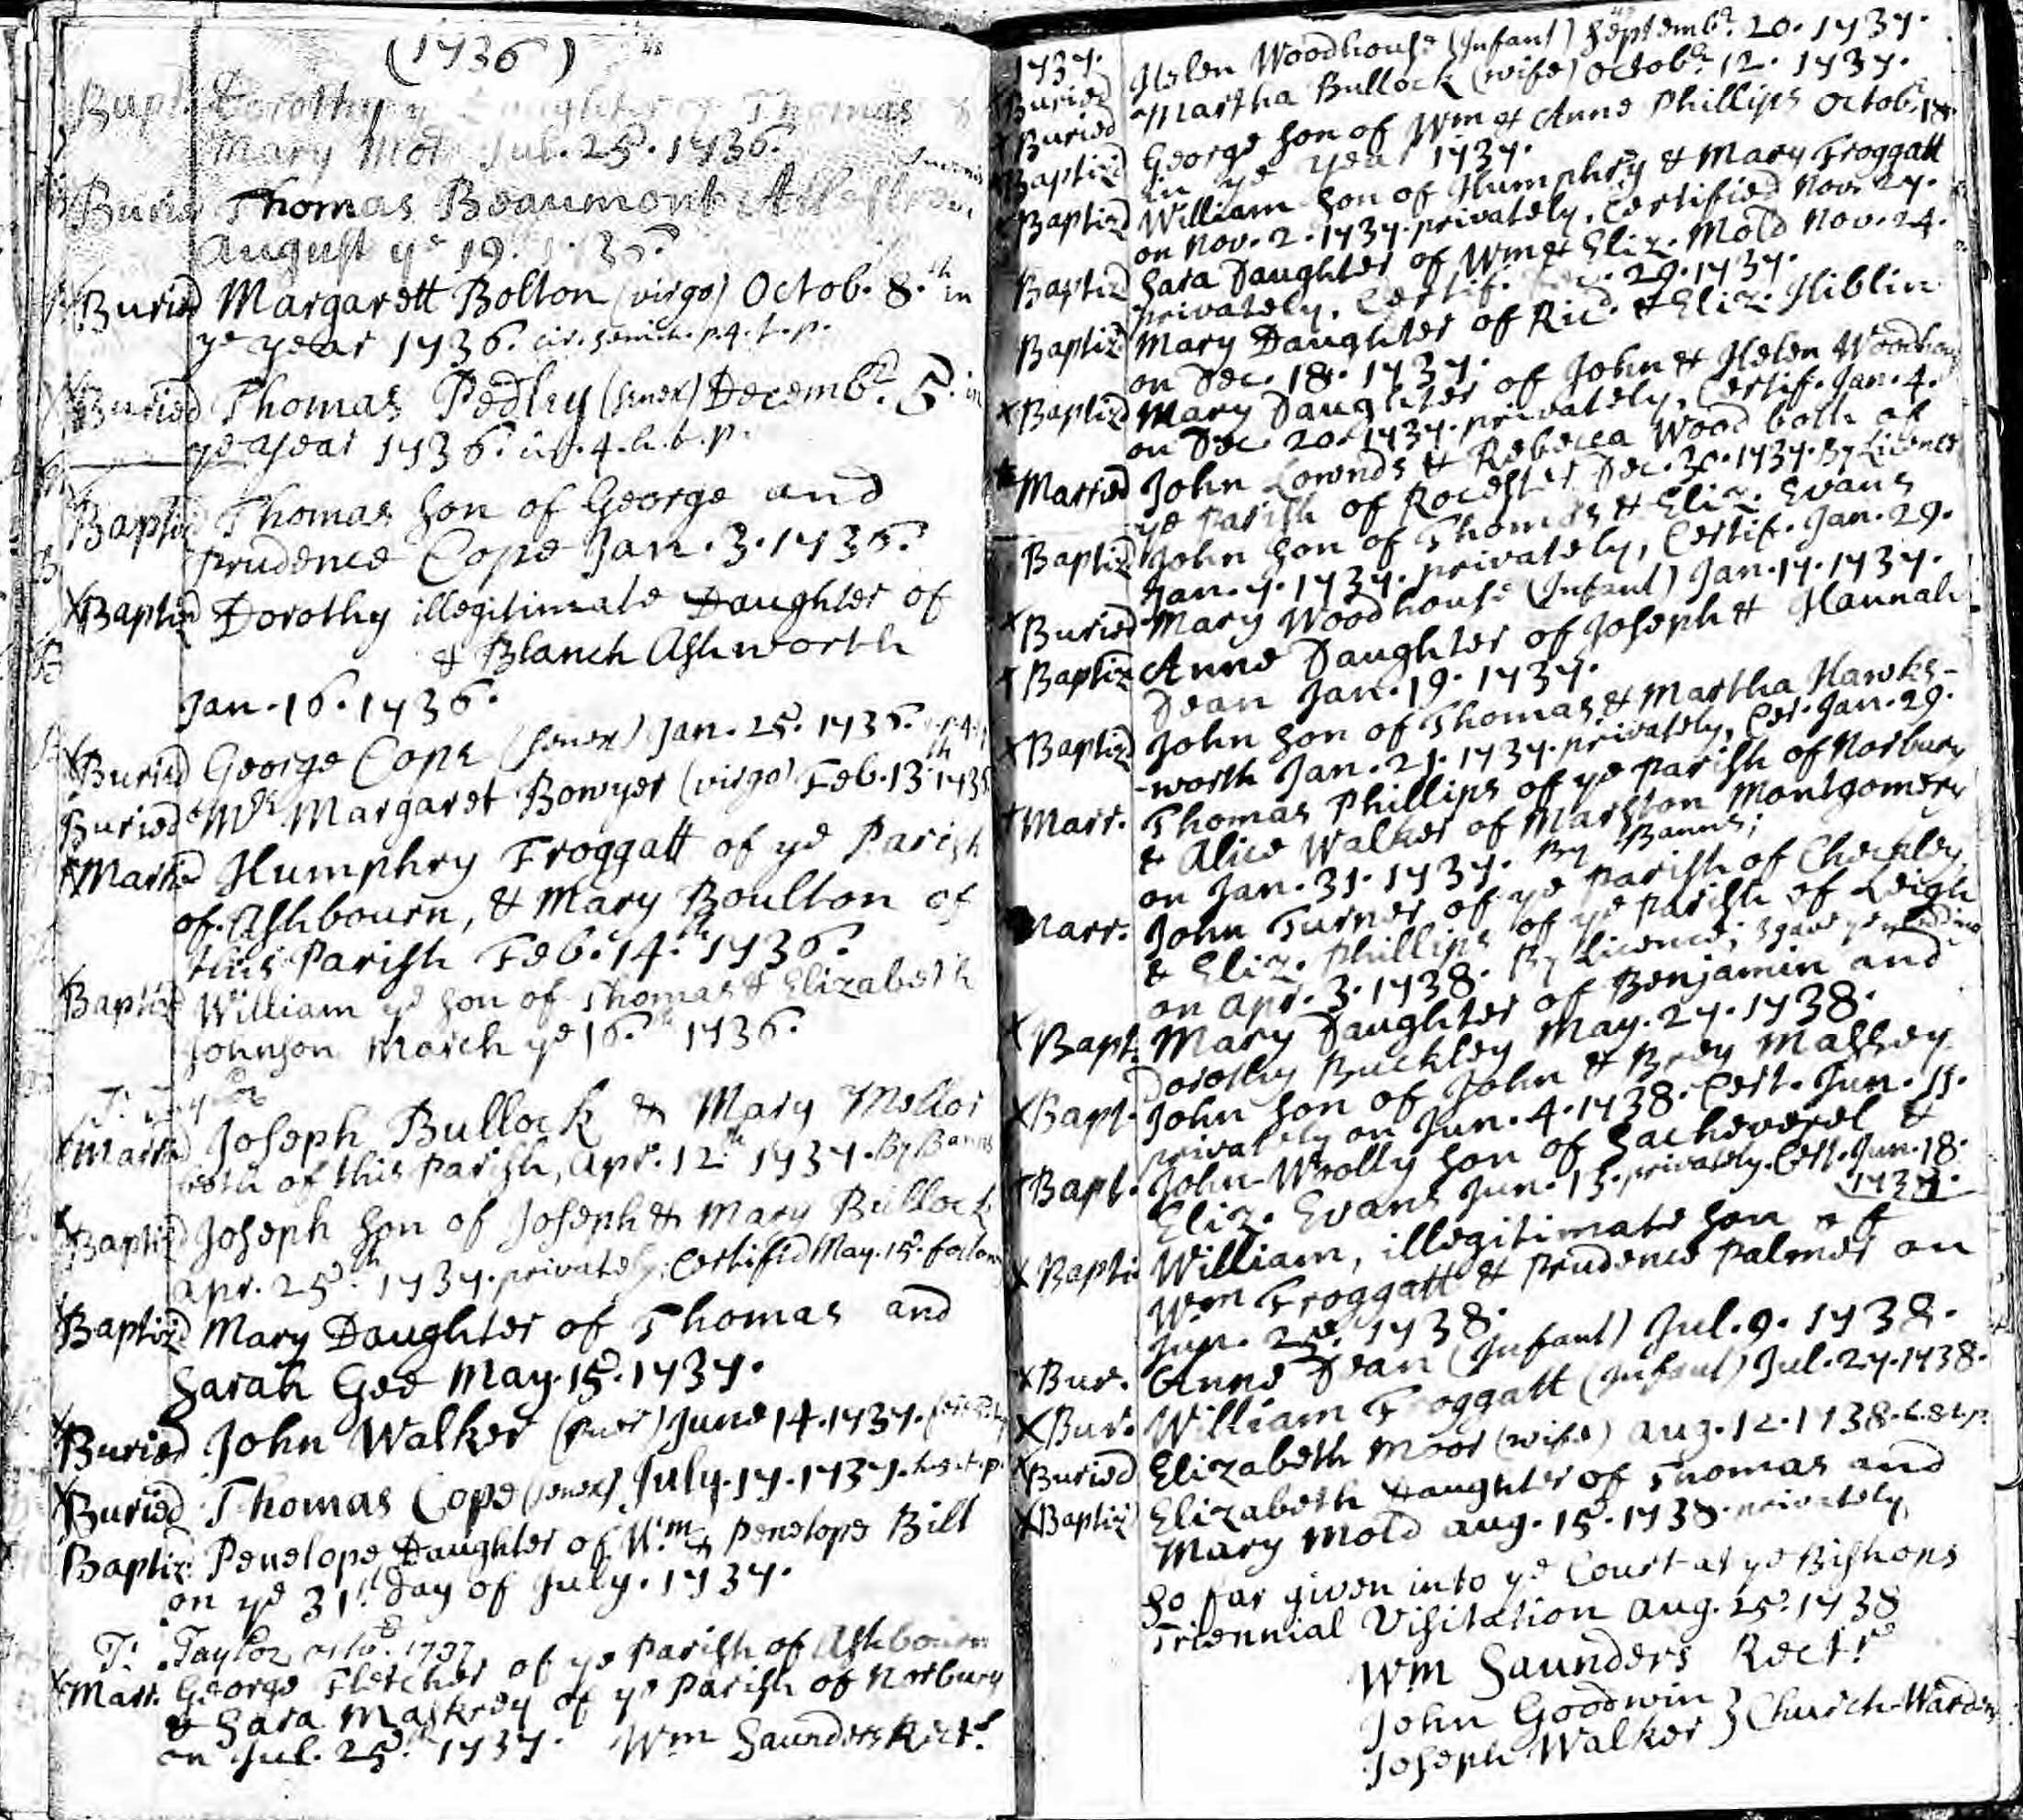 (1736)
Bapt. Dorothy Daughter of Thomas &
Mary Mold Jul. 25. 1736.
Buried Thomas Beaumont
August ye 19.
Buried Margarett Bolton (virgo) Octob. 8.th in
ye year 1736.
Buried Thomas Pedley (senex) Decembr. 5. in
ye year 1736.
Baptizd Thomas Son of George and
Prudence Cope Jan. 3. 1736.
Baptizd Dorothy illegitimate Daughter of
& Blanch Ashworth
Jan. 16. 1736.
Buried George Cope (senex) Jan. 25. 1736.
Buried Mrs. Margaret Bowyer (virgo) Feb. 13th 1736
Married Humphry Froggatt of ye Parish
of Ashbourn, & Mary Boulton of
this Parish Feb. 14th 1736.
Baptizd William ye Son of Thomas & Elizabeth
Johnson March ye 16.th 1736.
T. Taylor
Marrd Joseph Bullock & Mary Mellor
both of this Parish, Apr. 12th 1737. By Banns
Baptizd Joseph Son of Joseph & Mary Bullock
Apr. 25th 1737. privately. Certified May. 15.
Baptizd Mary Daughter of Thomas and
Sarah Gee May. 15. 1737.
Buried John Walker (puer) June 14. 1737.
Buried Thomas Cope (senex) July. 17. 1737.
Baptiz. Penelope Daughter of Wm & Penelope Bill
on ye 31st Day of July. 1737.
T. Taylor 1737
Marr. George Fletcher of ye Parish of Ashbourn
& Sara Maskrey of ye Parish of Norbury
on Jul. 25th 1737. Wm Saunders Rectr.
1737.
Buried Helen Woodhouse (Infant) Septembr. 20. 1737.
Buried Martha Bullock (wife) Octobr. 12. 1737.
Baptizd George Son of Wm & Anne Phillips Octob. 18.
in ye year 1737.
Baptizd William Son of Humphry & Mary Froggatt
on Nov. 2. 1737. privately, Certified Nov. 27.
Baptizd Sara Daughter of Wm & Eliz. Mold Nov. 24.
privately, Certif. 29. 1737.
Baptizd Mary Daughter of Ricd. & Eliz. Hiblin
on Dec. 18. 1737.
Baptizd Mary Daughter of John & Helen Woodhouse
on Dec. 20. 1737. privately, Certif. Jan. 4.
Married John Lownds & Rebecca Wood both of
ye Parish of Rocester Dec. 30. 1737. By Licence
Baptizd John Son of Thomas & Eliz. Evans
Jan. 7. 1737. privately, Certif. Jan. 29.
Buried Mary Woodhouse (Infant) Jan. 17. 1737.
Baptiz Anne Daughter of Joseph & Hannah
Dean Jan. 19. 1737.
Baptizd John Son of Thomas & Martha Hawks-
-worth Jan. 21. 1737. privately, Cer. Jan. 29.
Marr. Thomas Phillips of ye Parish of Norbury
& Alice Walker of Marston Montgomery
on Jan. 31. 1737. By Banns;
Marr. John Turner of ye Parish of Checkley
& Eliz. Phillips of ye Parish of Leigh
on Apr. 3. 1738. By Licence;
Bapt. Mary Daughter of Benjamin and
Dorothy Buckley May. 27. 1738.
Bapt. John Son of John & Massey
privately on Jun. 4. 1738. Cert. Jun. 11.
Bapt. John-Woolly Son of Sacheverel &
Eliz. Evans Jun. 15. privately. Cert. Jun. 18.
Baptiz William, illegitimate Son of
Wm Froggatt & Prudence Palmer on
Jun. 25. 1738.
Bur. Anne Dean (Infant) Jul. 9. 1738.
Bur. William Froggatt (Infant) Jul. 27. 1738.
Buried Elizabeth Moor (wife) Aug. 12. 1738.
Baptiz Elizabeth Daughter of Thomas and
Mary Mold Aug. 15. 1738. privately
So far given into ye Court at ye Bishops
Triennial Visitation Aug. 25. 1738
Wm Saunders Rectr.
John Goodwin }
Joseph Walker } Church-Wardens